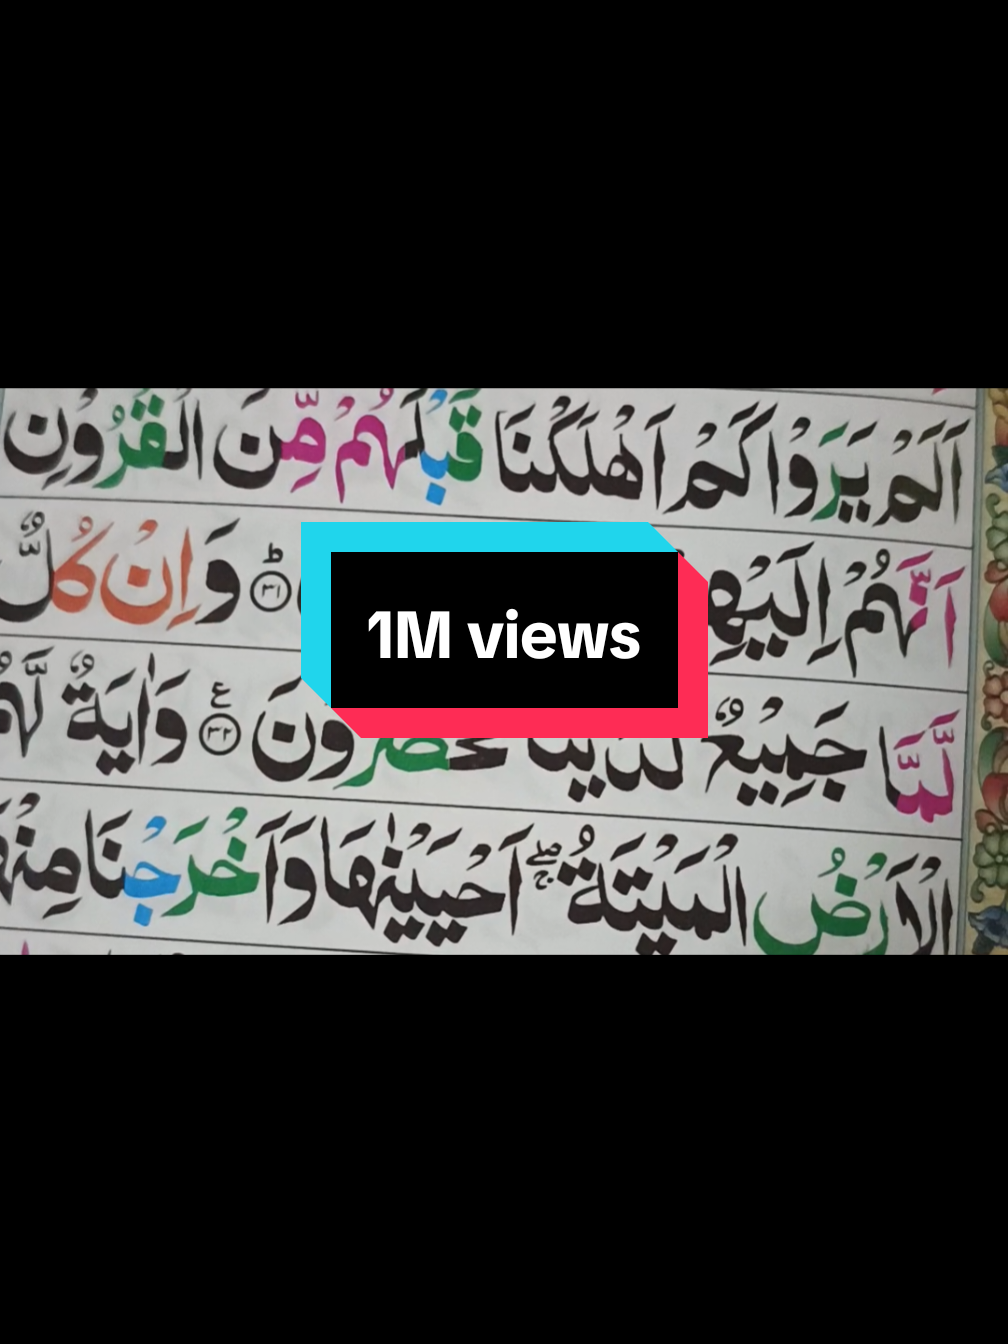 اَلَمْ يَرَوْا كَمْ اَهْلَكْنَا قَبْلَهُمْ مِّنَ الْقُرُوْنِ
اَنَّهُمْ اِلَيْهِ ۳۱ ؕ وَاِنْ كُلٌّ
1M views
لَّمَّا جَمِيْعٌ لَّدَيْنَا مُحْضَرُوْنَ ۳۲ ع وَاٰيَةٌ لَّهُمُ
الْاَرْضُ الْمَيْتَةُ ۖۚ اَحْيَيْنٰهَا وَاَخْرَجْنَا مِنْهَا